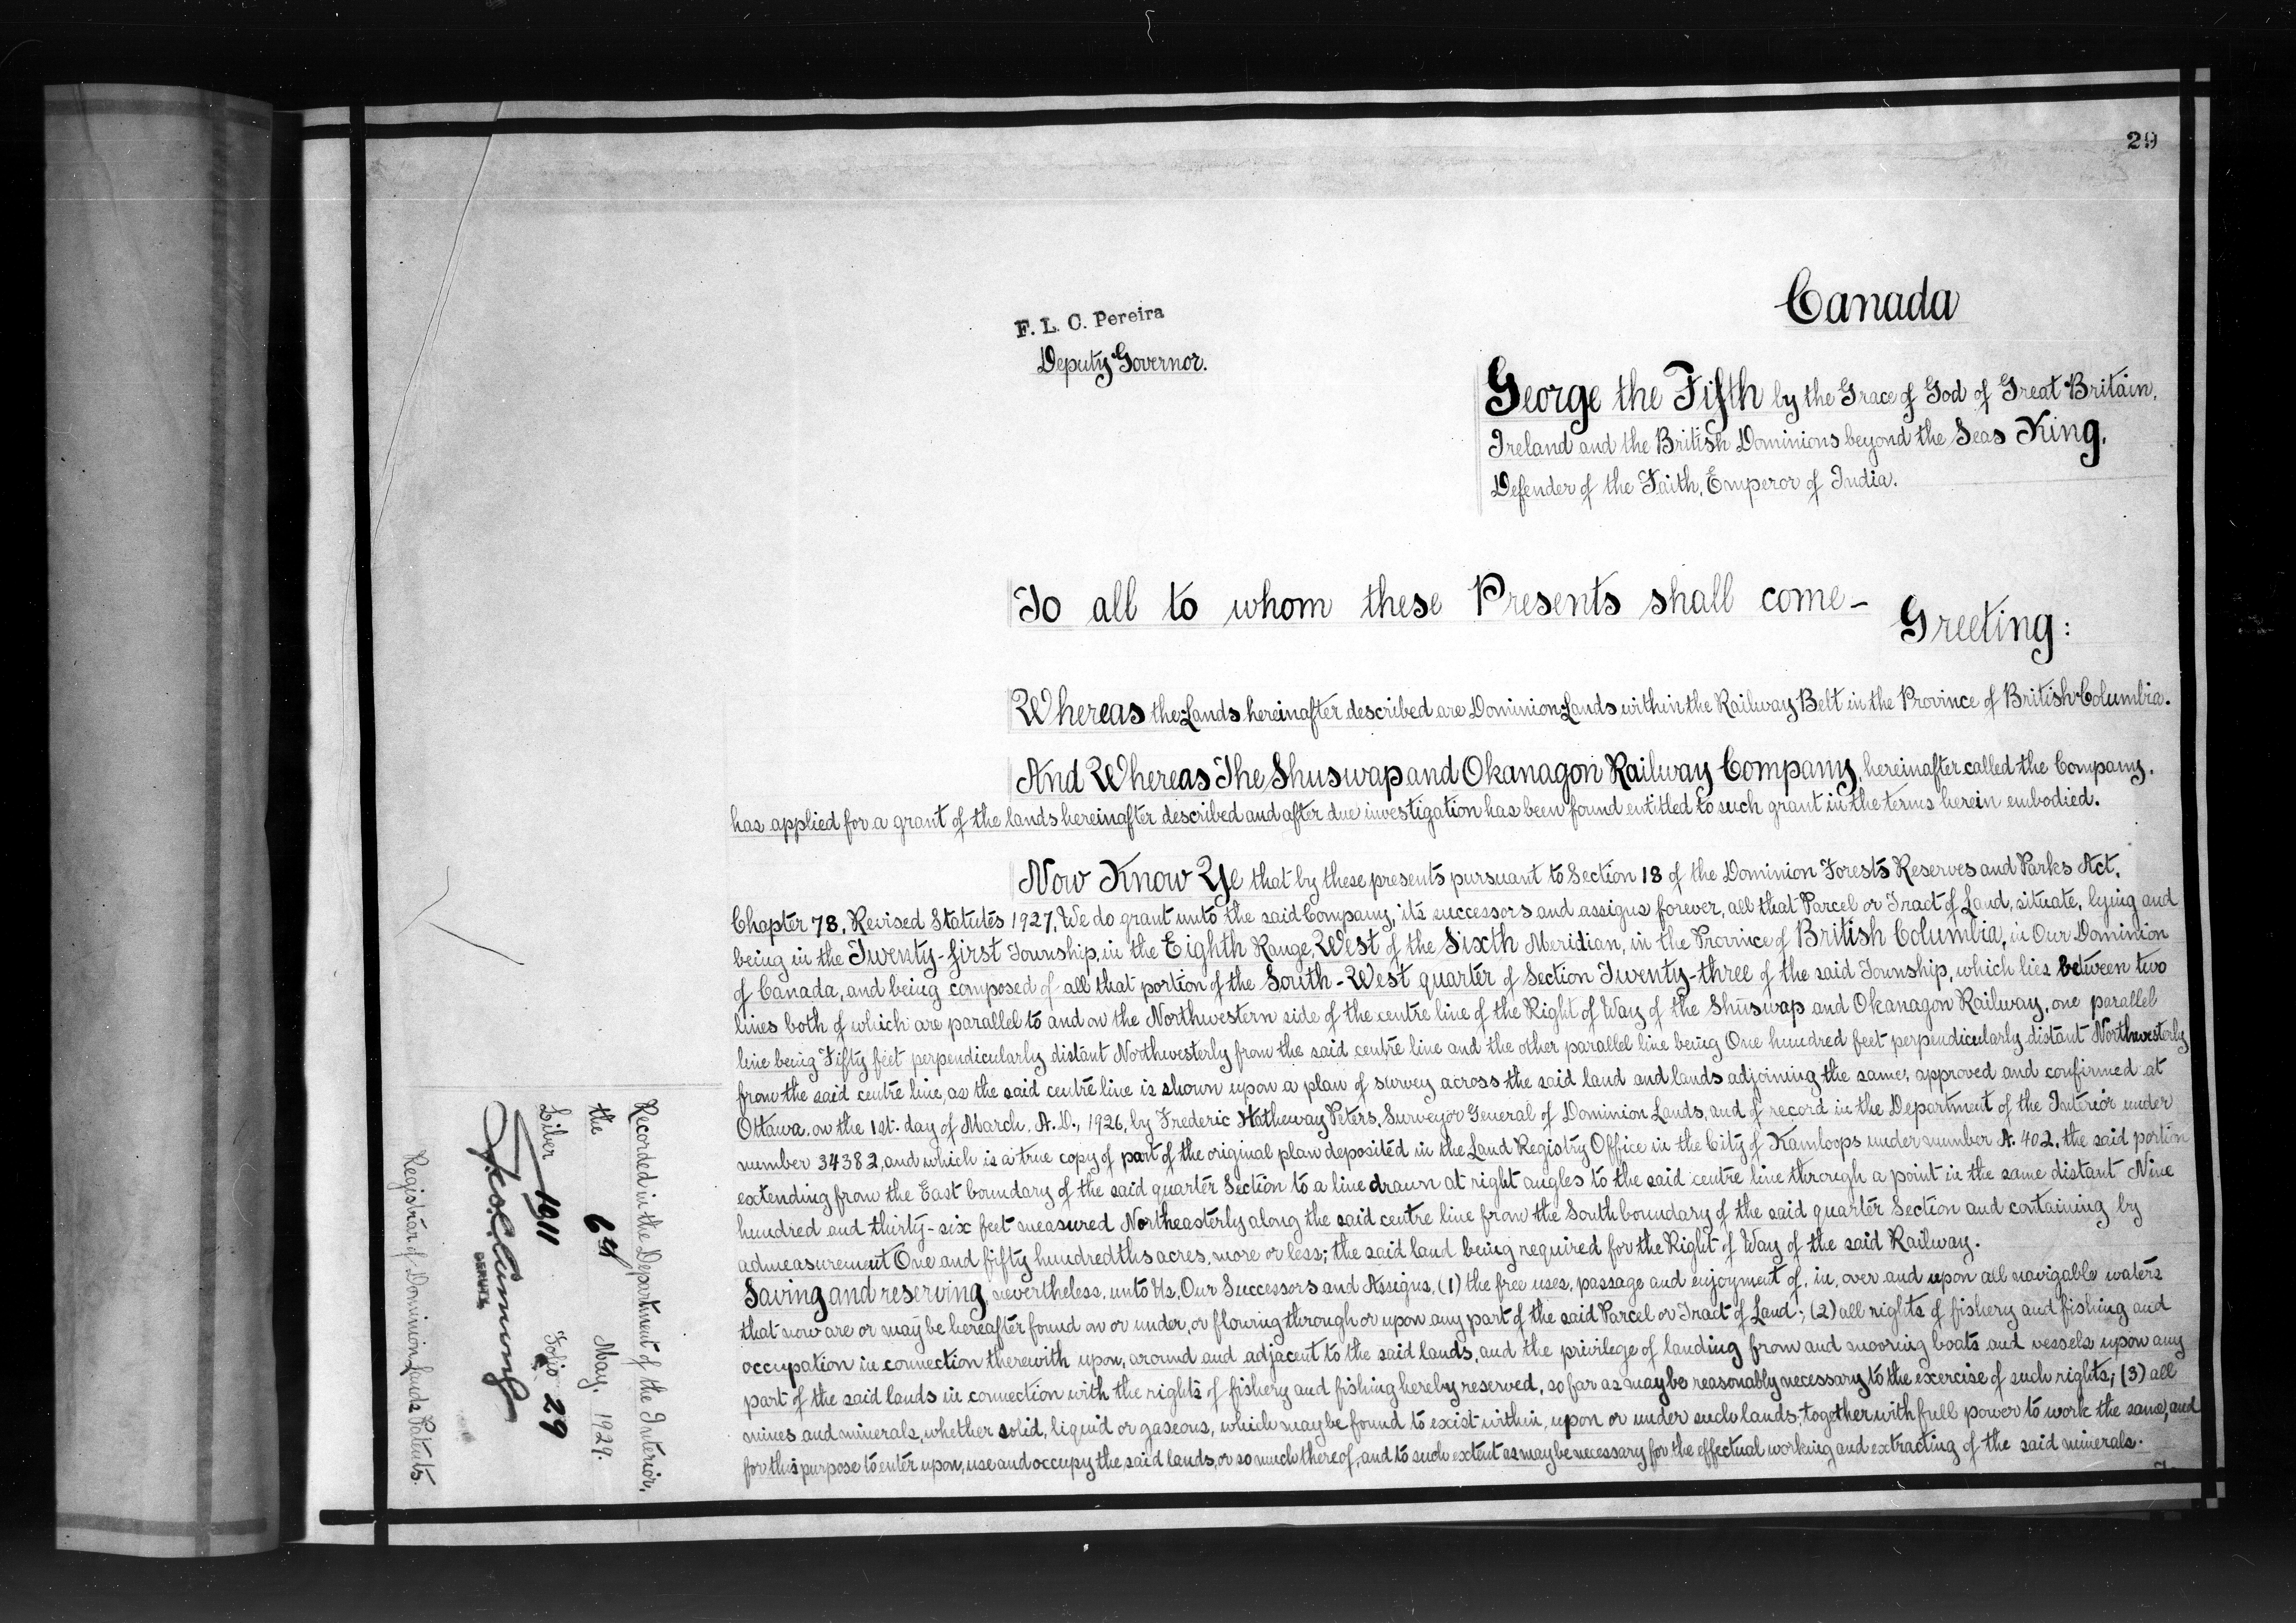 29
Canada
F. L. C. Pereira
Deputy Governor.
George the Fifth by the Grace of God of Great Britain,
Ireland and the British Dominions beyond the Seas King,
Defender of the Faith, Emperor of India.
To all to whom these Presents shall come-
Greeting:
Whereas the Lands hereinafter described are Dominion Lands within the Railway Belt in the Province of British Columbia.
And Whereas The Shuswap and Okanagon Railway Company, hereinafter called the Company,
has applied for a grant of the lands hereinafter described and after due investigation has been found entitled to such grant in the terms herein embodied.
Now Know Ye that by these presents pursuant to Section 18 of the Dominion Forests Reserves and Parks Act,
Chapter 78, Revised Statutes 1927, We do grant unto the said Company, its successors and assigns forever, all that Parcel or Tract of Land, situate, lying and
being in the Twenty-first Township, in the Eighth Range, West of the Sixth Meridian, in the Province of British Columbia, in Our Dominion
of Canada, and being composed of all that portion of the South-West quarter of Section Twenty-three of the said Township, which lies between two
lines both of which are parallel to and on the Northwestern side of the centre line of the Right of Way of the Shuswap and Okanagon Railway, one parallel
line being Fifty feet perpendicularly distant Northwesterly from the said centre line and the other parallel line being One hundred feet perpendicularly distant Northwesterly
from the said centre line, as the said centre line is shown upon a plan of survey across the said land and lands adjoining the same, approved and confirmed at
Ottawa, on the 1st. day of March, A.D., 1926, by Frederic Hatheway Peters, Surveyor General of Dominion Lands, and of record in the Department of the Interior under
number 34382, and which is a true copy of part of the original plan deposited in the Land Registry Office in the City of Kamloops under number A. 402, the said portion
extending from the East boundary of the said quarter Section to a line drawn at right angles to the said centre line through a point in the same distant Nine
hundred and thirty-six feet measured Northeasterly along the said centre line from the South boundary of the said quarter Section and containing by
admeasurement One and fifty hundredths acres, more or less; the said land being required for the Right of Way of the said Railway.
Saving and reserving, nevertheless, unto Us, Our Successors and Assigns, (1) the free uses, passage and enjoyment of, in, over and upon all navigable waters
that now are or may be hereafter found on or under, or flowing through or upon any part of the said Parcel or Tract of Land; (2) all rights of fishery and fishing and
occupation in connection therewith upon, around and adjacent to the said lands, and the privilege of landing from and mooring boats and vessels upon any
part of the said lands in connection with the rights of fishery and fishing hereby reserved, so far as may be reasonably necessary to the exercise of such rights; (3) all
mines and minerals, whether solid, liquid or gaseous, which may be found to exist within, upon or under such lands, together with full power to work the same, and
for this purpose to enter upon, use and occupy the said lands, or so much thereof, and to such extent as may be necessary for the effectual working and extracting of the said minerals.
Recorded in the Department of the Interior,
the 6th May, 1929.
Liber 1911 Folio 29
DEPUTY
Registrar of Dominion Lands Patents.